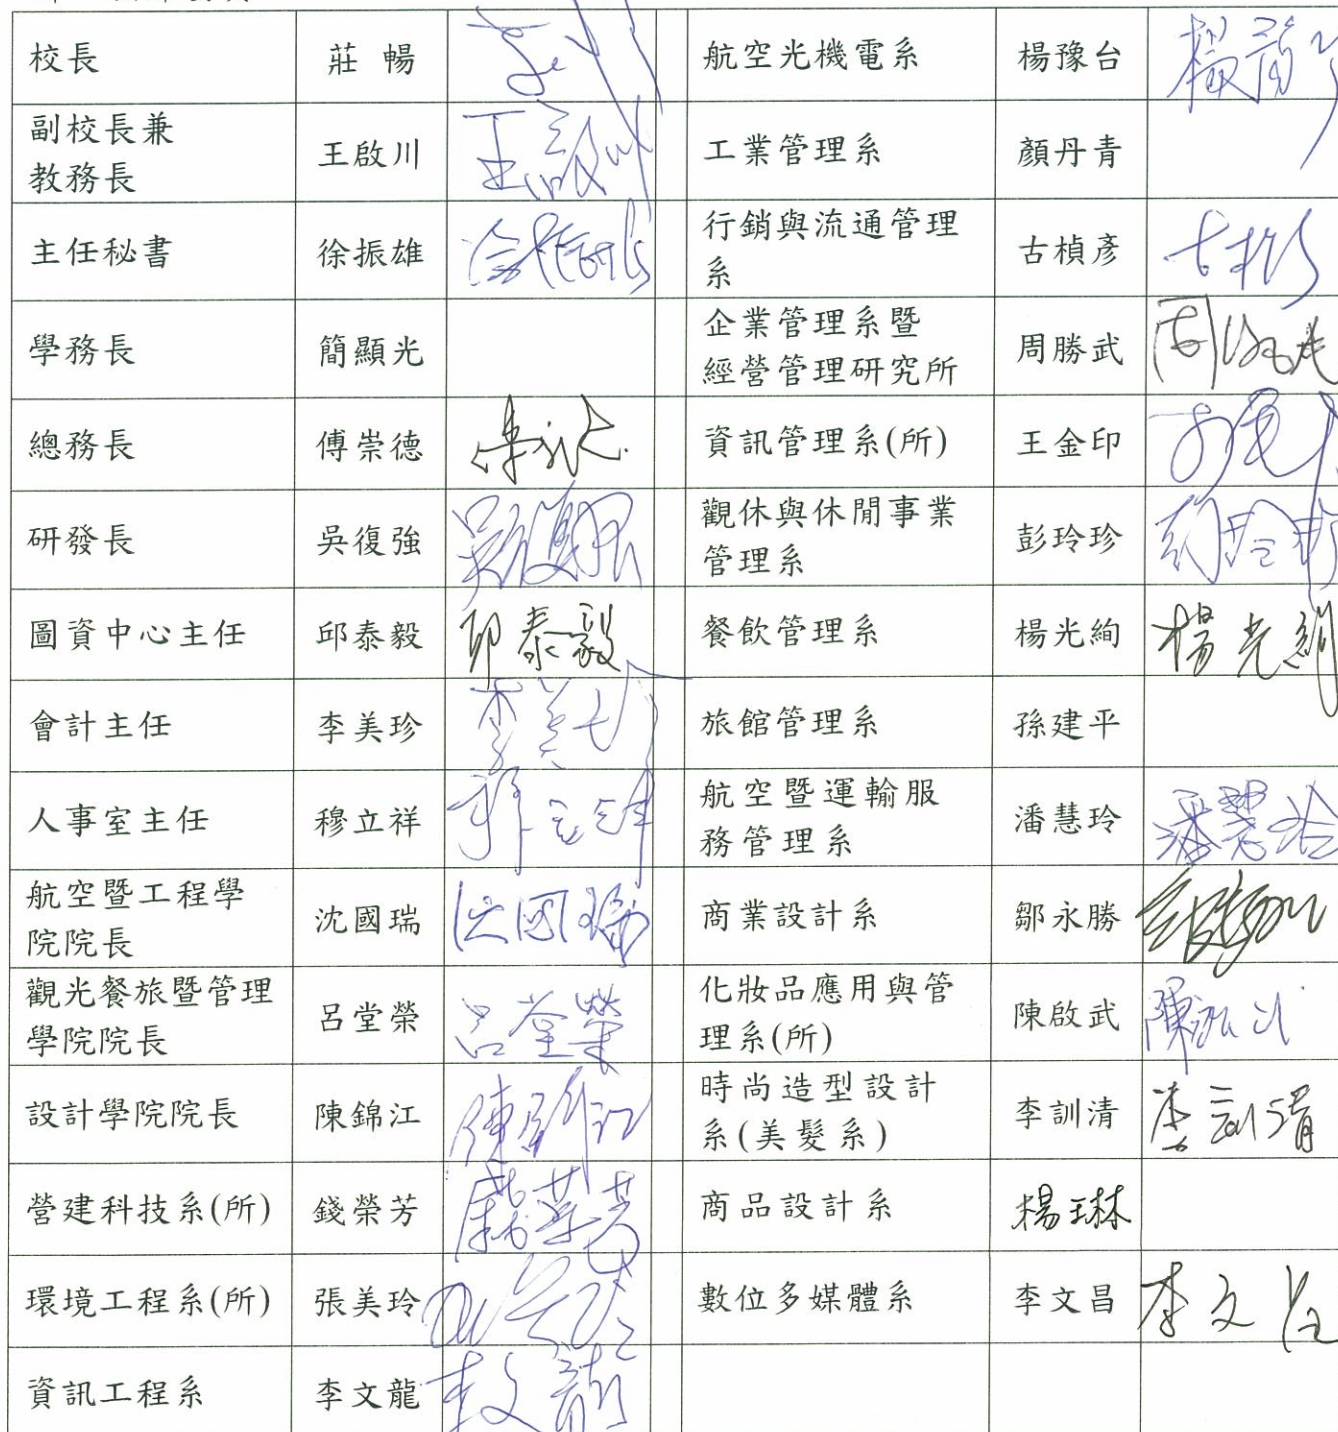 校長 莊 暢 航空光機電系 楊豫台 楊
副校長兼
教務長 王啟川 王啟川 工業管理系 顏丹青
主任秘書 徐振雄 徐振雄 行銷與流通管理
系 古楨彥 古
學務長 簡顯光 企業管理系暨
經營管理研究所 周勝武 周勝武
總務長 傅崇德 資訊管理系(所) 王金印
研發長 吳復強 吳復強 觀休與休閒事業
管理系 彭玲珍 彭玲珍
圖資中心主任 邱泰毅 邱泰毅 餐飲管理系 楊光絢 楊光絢
會計主任 李美珍 李美珍 旅館管理系 孫建平
人事室主任 穆立祥 穆立祥 航空暨運輸服
務管理系 潘慧玲 潘慧玲
航空暨工程學
院院長 沈國瑞 沈國瑞 商業設計系 鄒永勝
觀光餐旅暨管理
學院院長 呂堂榮 呂堂榮 化妝品應用與管
理系(所) 陳啟武 陳
設計學院院長 陳錦江 陳錦江 時尚造型設計
系(美髮系) 李訓清 李訓清
營建科技系(所) 錢榮芳 錢榮芳 商品設計系 楊琳
環境工程系(所) 張美玲 數位多媒體系 李文昌 李文昌
資訊工程系 李文龍 李文龍